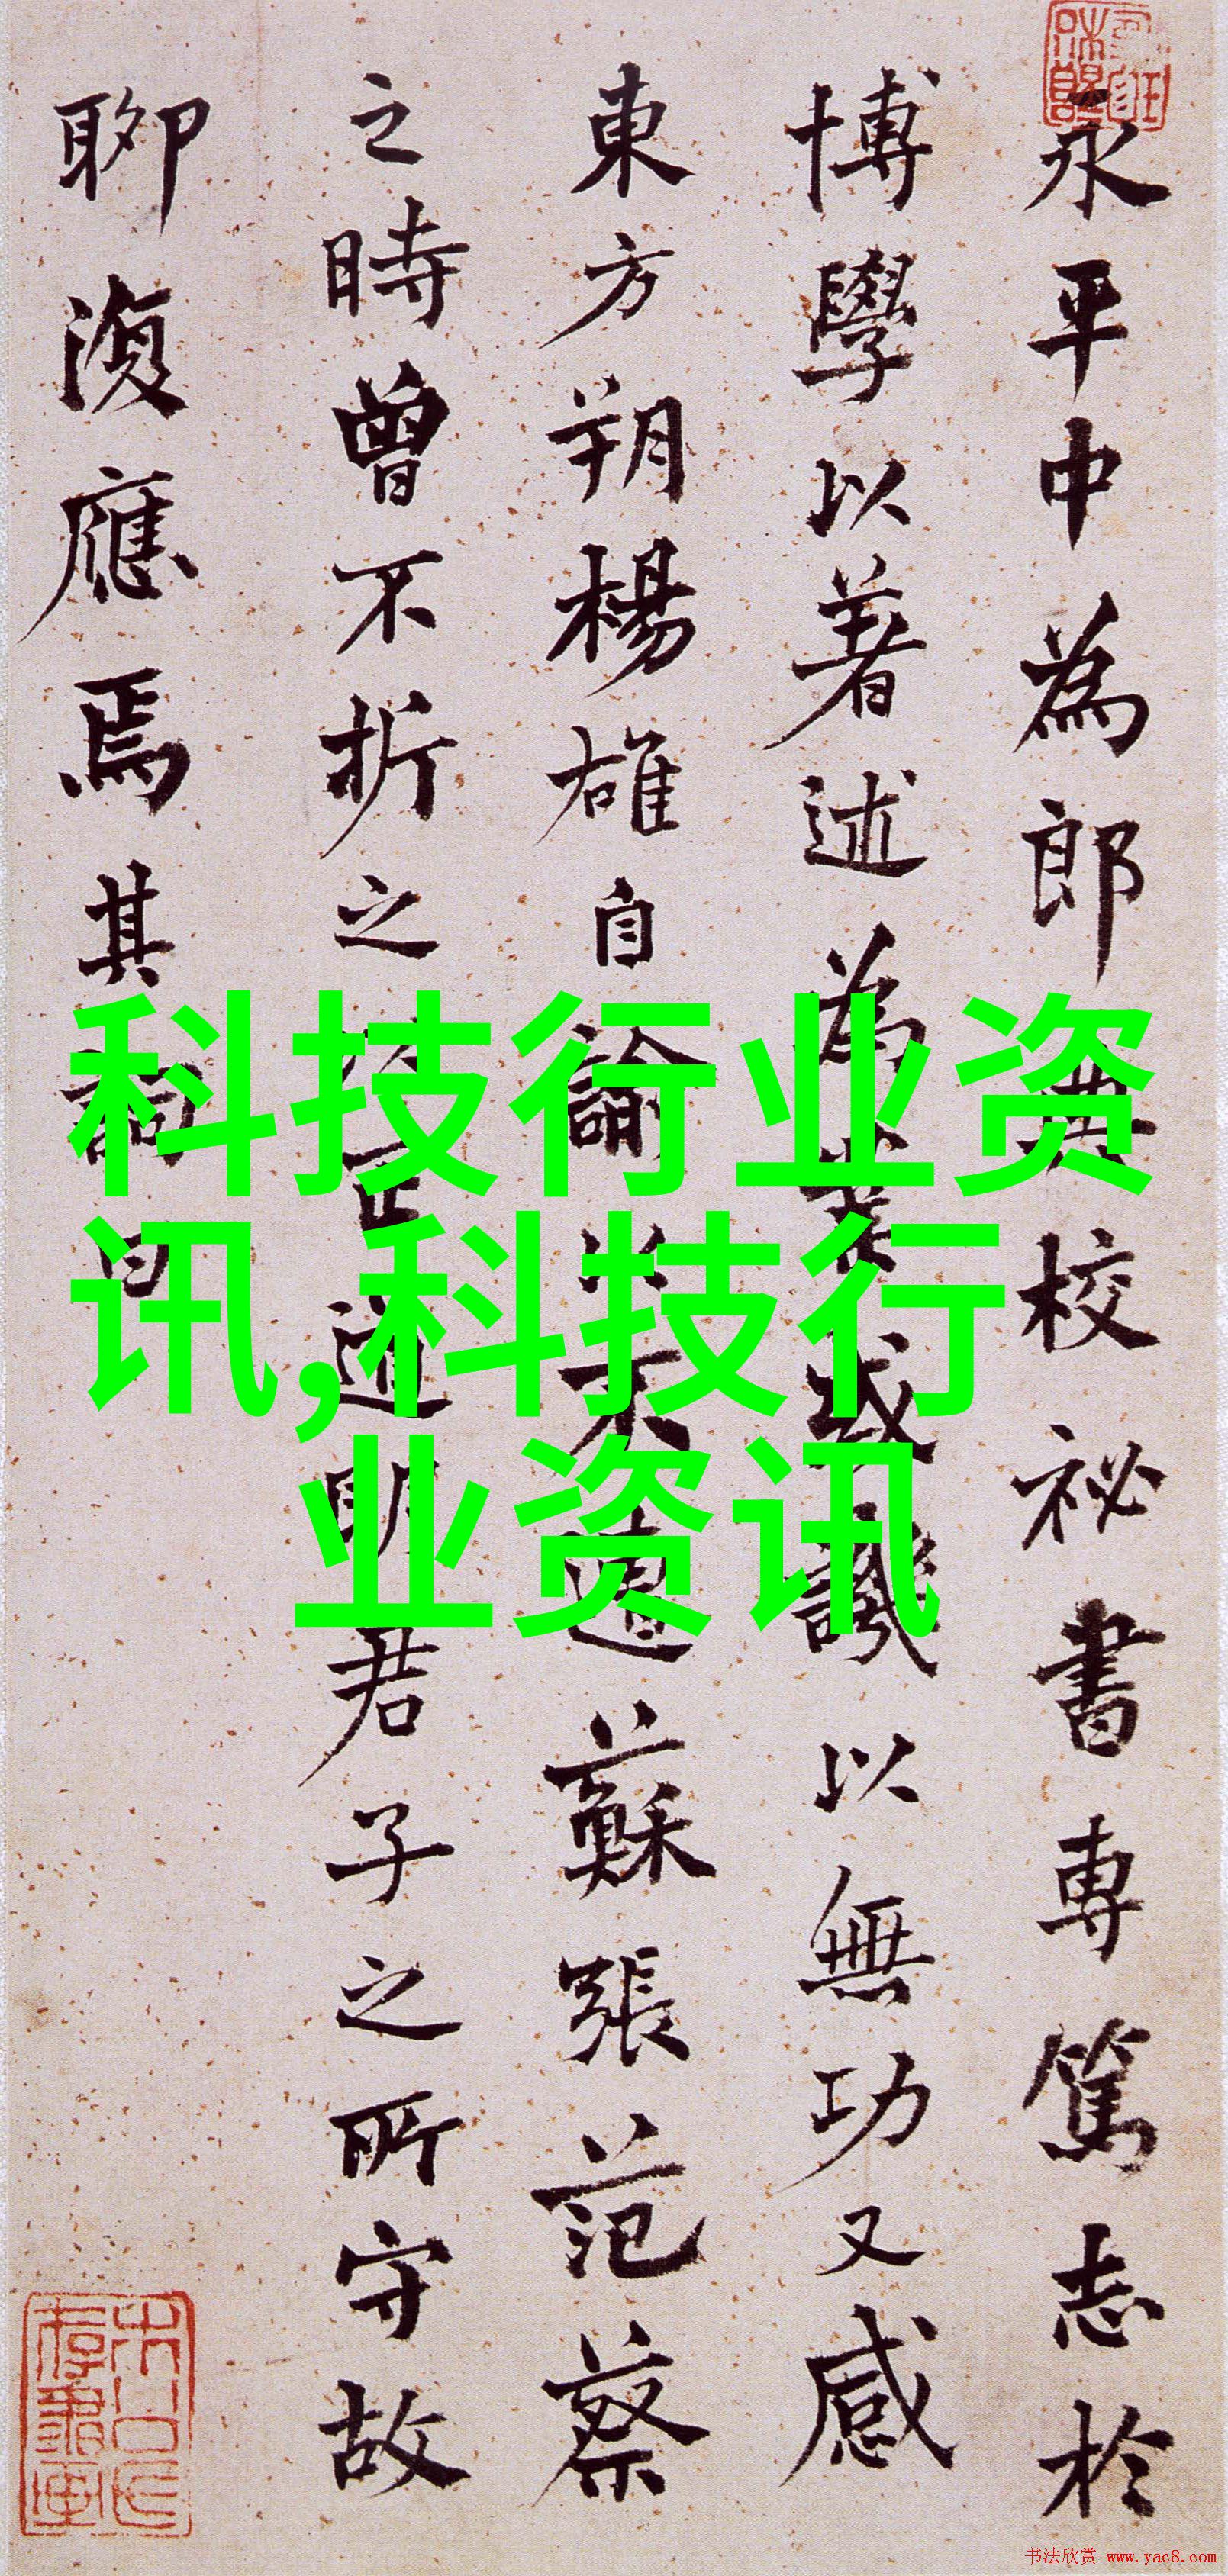 永平中為郎典校祕書專篤志於
博學以著述為業或譏以無功又感
東方朔楊雄自諭不遭蘇張范蔡
之時曾不折之以正道明君子之所守故
聊復應焉其詞曰
科技行业资
讯,科技行
业资讯
书法欣赏 www.yac8.com